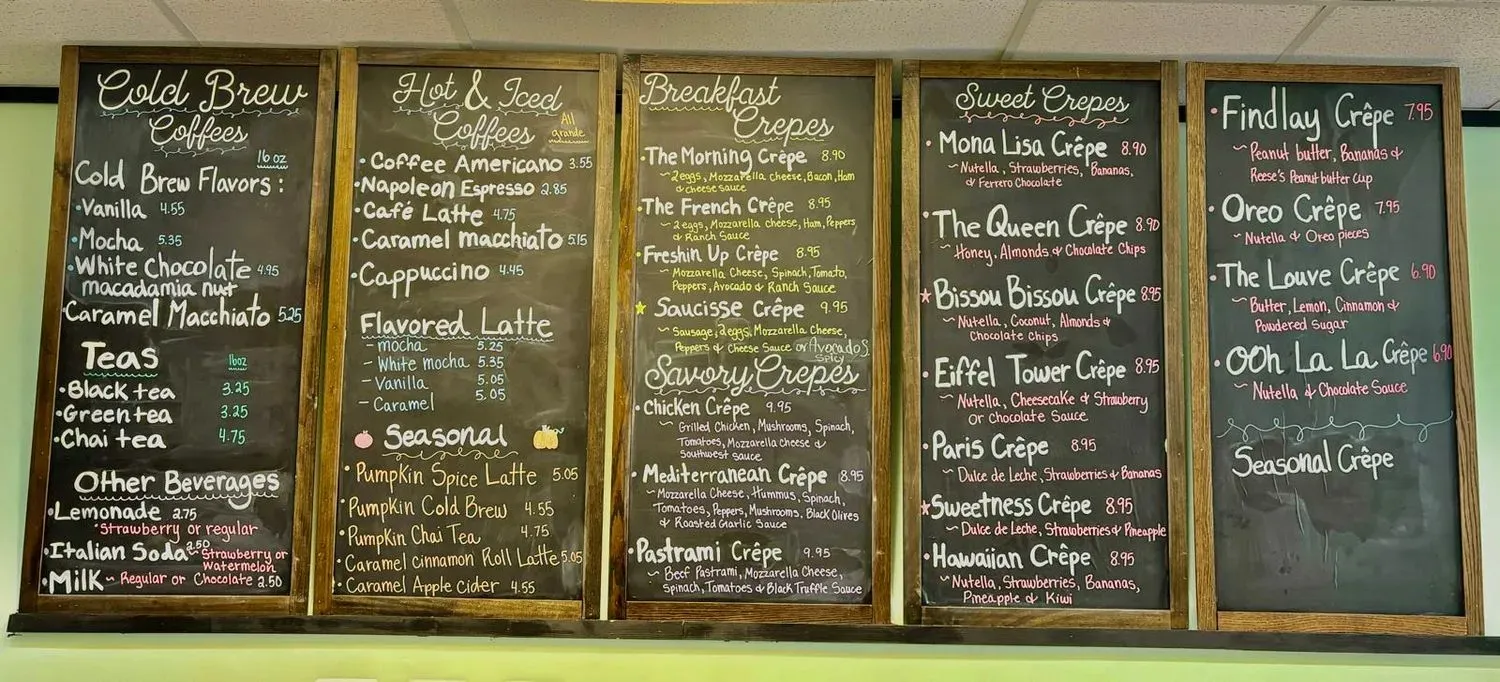 Cold Brew
Coffees
16 oz
Cold Brew Flavors:
•Vanilla 4.55
•Mocha 5.35
•White Chocolate 4.95
macadamia nut
Caramel Macchiato 5.25
Teas 16oz
•Black tea 3.25
•Green tea 3.25
•Chai tea 4.75
Other Beverages
•Lemonade 2.75
*Strawberry or regular
•Italian Soda 2.50 ~ Strawberry or
Watermelon
•Milk ~ Regular or Chocolate 2.50
Hot & Iced
Coffees All
grande
•Coffee Americano 3.55
•Napoleon Espresso 2.85
•Café Latte 4.75
•Caramel macchiato 5.15
•Cappuccino 4.45
Flavored Latte
- mocha 5.25
- White mocha 5.35
- Vanilla 5.05
- Caramel 5.05
Seasonal
•Pumpkin Spice Latte 5.05
•Pumpkin Cold Brew 4.55
•Pumpkin Chai Tea 4.75
•Caramel cinnamon Roll Latte 5.05
•Caramel Apple cider 4.55
Breakfast
Crepes
•The Morning Crêpe 8.90
~ 2 eggs, Mozzarella cheese, Bacon, Ham
& cheese sauce
•The French Crêpe 8.95
~ 2 eggs, Mozzarella cheese, Ham, Peppers
& Ranch Sauce
•Freshin Up Crêpe 8.95
~ Mozzarella Cheese, Spinach, Tomato,
Peppers, Avocado & Ranch Sauce
★ Saucisse Crêpe 9.95
~ Sausage, 2 eggs, Mozzarella Cheese,
Peppers & Cheese Sauce or Avocado S.
spicy
Savory Crepes
•Chicken Crêpe 9.95
~ Grilled Chicken, Mushrooms, Spinach,
Tomatoes, Mozzarella Cheese &
Southwest sauce
•Mediterranean Crêpe 8.95
~ Mozzarella Cheese, Hummus, Spinach,
Tomatoes, Peppers, Mushrooms, Black Olives
& Roasted Garlic Sauce
•Pastrami Crêpe 9.95
~ Beef Pastrami, Mozzarella Cheese,
Spinach, Tomatoes & Black Truffle Sauce
Sweet Crepes
•Mona Lisa Crêpe 8.90
~ Nutella, Strawberries, Bananas,
& Ferrero Chocolate
•The Queen Crêpe 8.90
~ Honey, Almonds & Chocolate Chips
★Bissou Bissou Crêpe 8.95
~ Nutella, Coconut, Almonds &
Chocolate Chips
•Eiffel Tower Crêpe 8.95
~ Nutella, Cheesecake & Strawberry
Or Chocolate Sauce
•Paris Crêpe 8.95
~ Dulce de Leche, Strawberries & Bananas
★Sweetness Crêpe 8.95
~ Dulce de Leche, Strawberries & Pineapple
•Hawaiian Crêpe 8.95
~ Nutella, Strawberries, Bananas,
Pineapple & Kiwi
•Findlay Crêpe 7.95
~ Peanut butter, Bananas &
Reese's Peanut butter Cup
•Oreo Crêpe 7.95
~ Nutella & Oreo pieces
•The Louve Crêpe 6.90
~ Butter, Lemon, Cinnamon &
Powdered Sugar
•OOh La La Crêpe 6.90
~ Nutella & Chocolate Sauce
Seasonal Crêpe